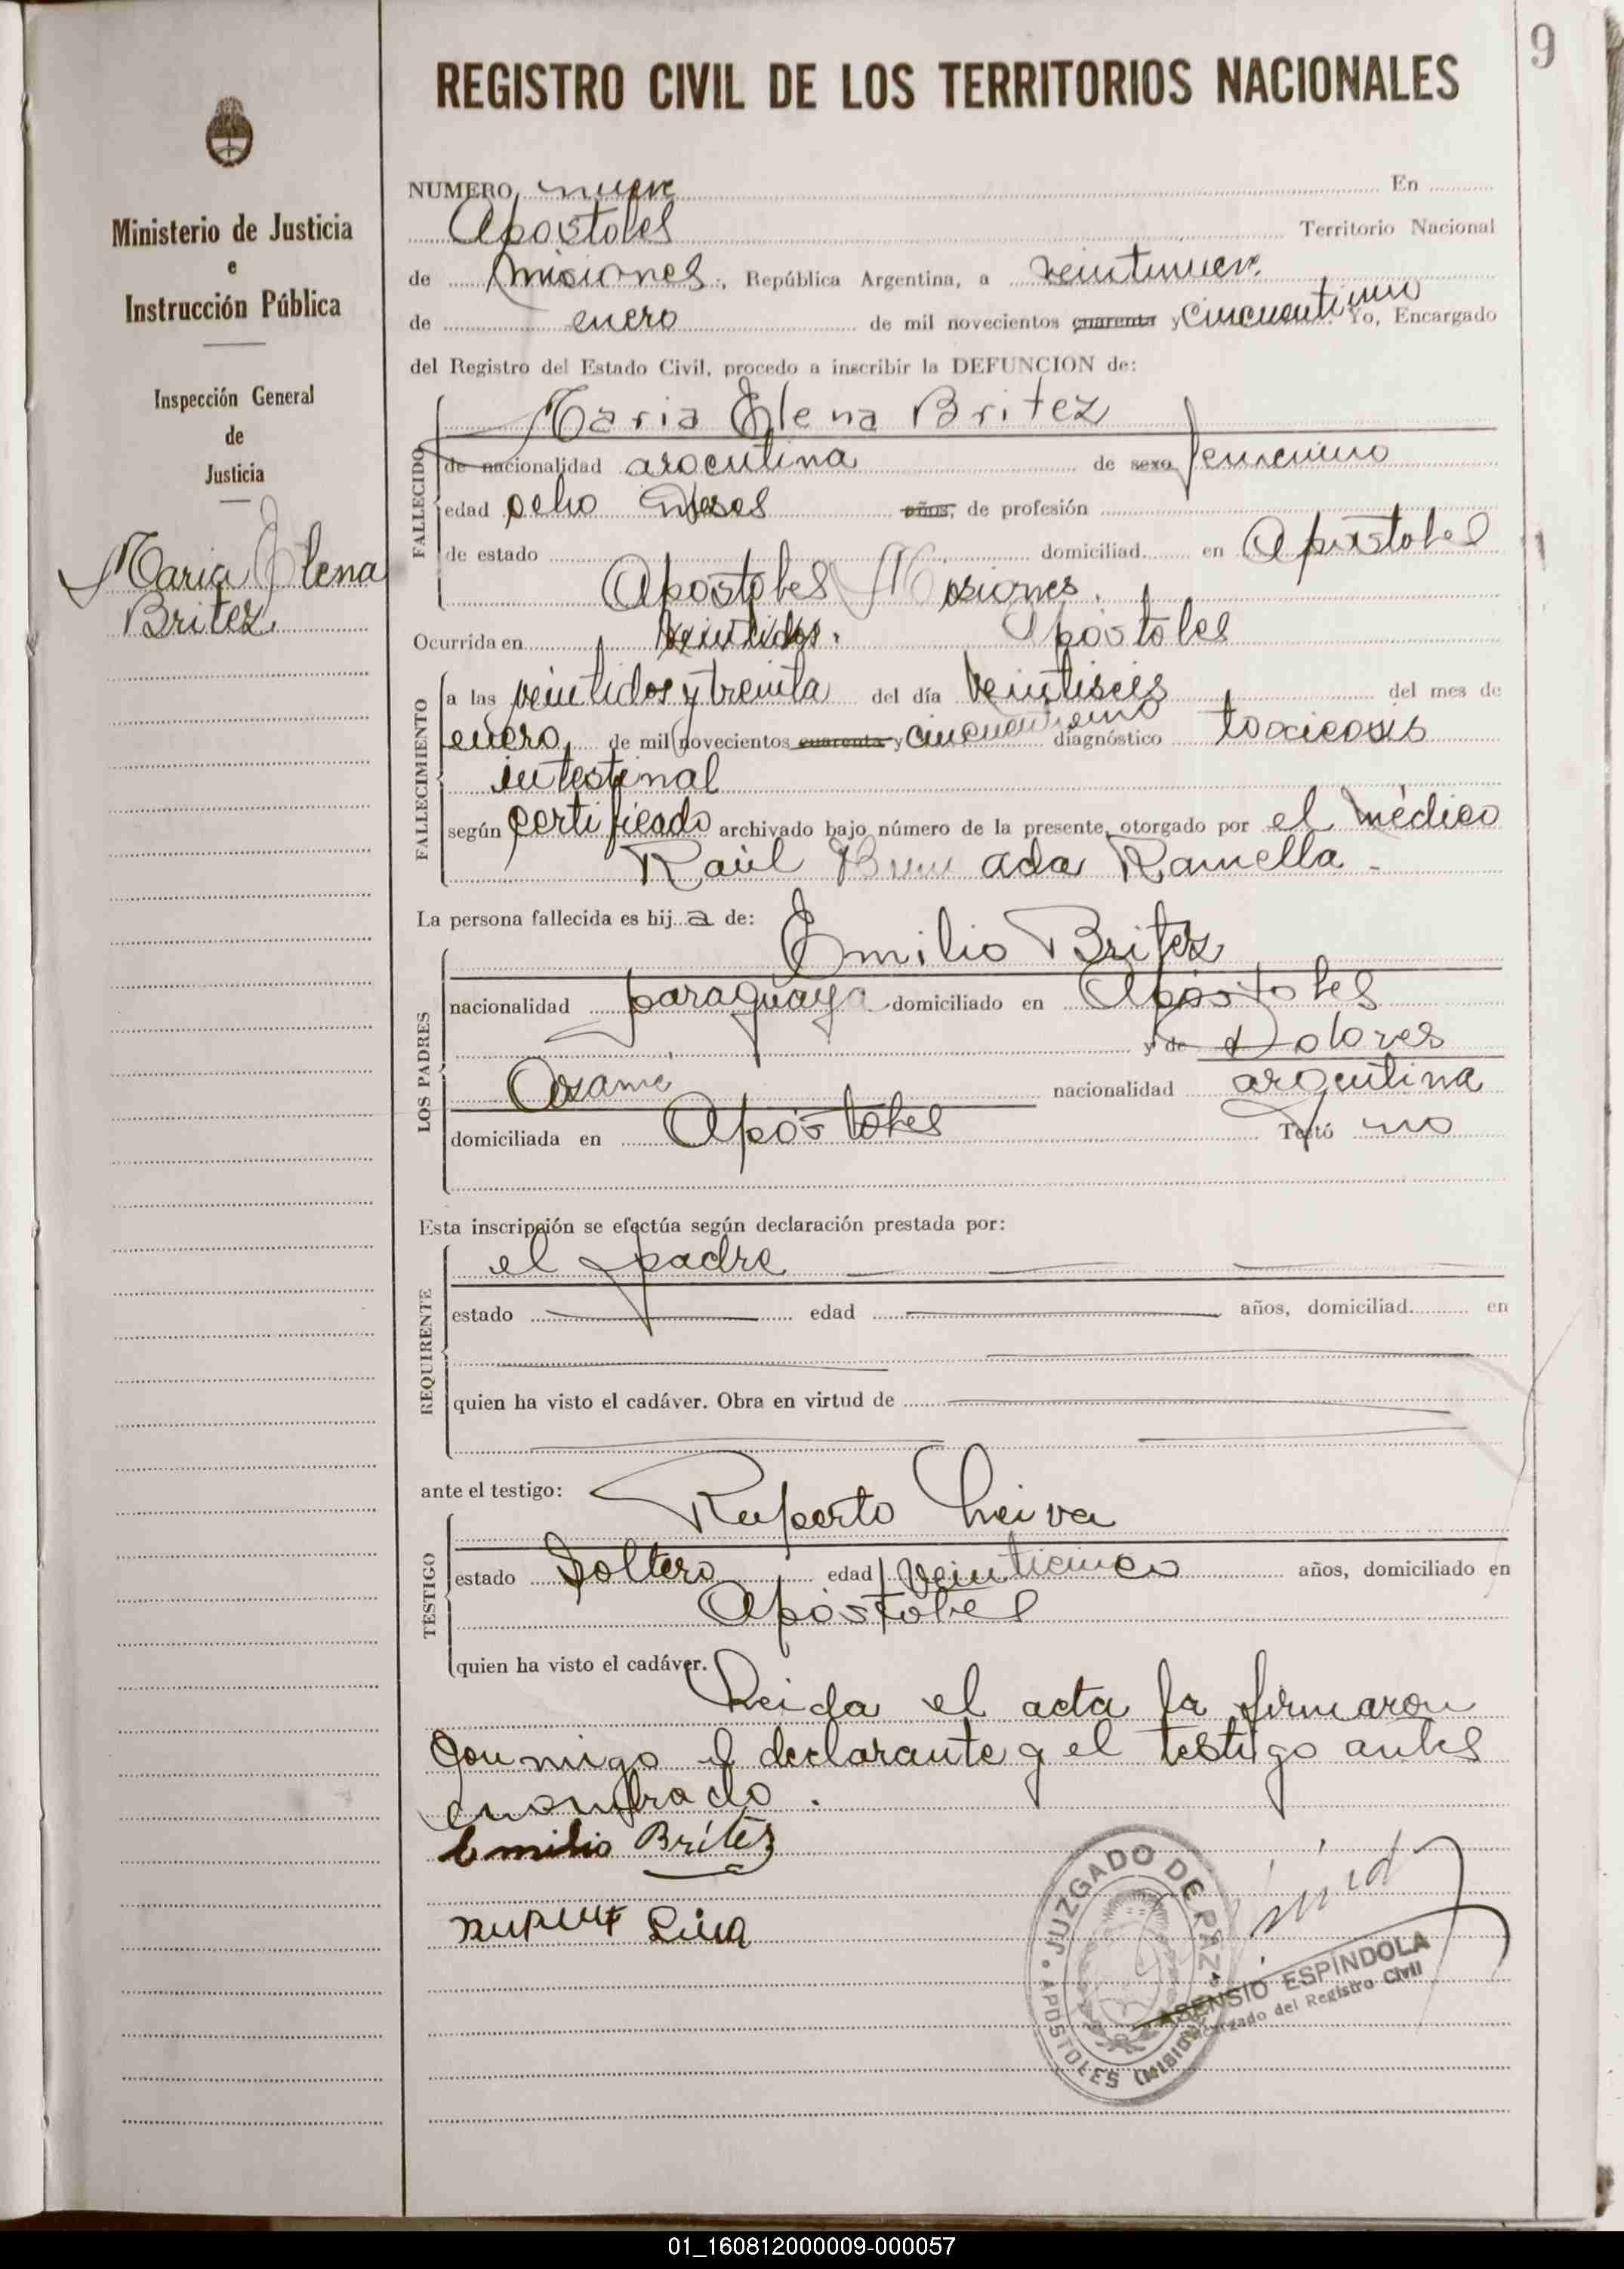 9
REGISTRO CIVIL DE LOS TERRITORIOS NACIONALES
Ministerio de Justicia
e
Instrucción Pública
Inspección General
de
Justicia
Maria Elena
Britez
NUMERO nueve En
Apóstoles Territorio Nacional
de Misiones, República Argentina, a veintinueve
de enero de mil novecientos cuarenta y cincuentiuno Yo, Encargado
del Registro del Estado Civil, procedo a inscribir la DEFUNCION de:
Maria Elena Britez
FALLECIDO
de nacionalidad argentina de sexo femenino
edad ocho meses años, de profesión
de estado domiciliad en Apóstoles
Apóstoles Misiones.
Ocurrida en veintidos. Apóstoles
FALLECIMIENTO
a las veintidos y treinta del día veintiseis del mes de
enero, de mil novecientos cuarenta y cincuentiuno diagnóstico toxicosis
intestinal
según certificado archivado bajo número de la presente, otorgado por el médico
Raúl ada Ramella -
La persona fallecida es hija de:
LOS PADRES
Emilio Britez
nacionalidad paraguaya domiciliado en Apóstoles
y de Dolores
nacionalidad argentina
domiciliada en Apóstoles Testó no
Esta inscripción se efectúa según declaración prestada por:
REQUIRENTE
el padre
estado edad años, domiciliad en
quien ha visto el cadáver. Obra en virtud de
ante el testigo:
TESTIGO
Ruperto Leiva
estado Soltero edad veinticinco años, domiciliado en
Apóstoles
quien ha visto el cadáver.
Leida el acta la firmaron
conmigo el declarante y el testigo antes
enombrado.
Emilio Britez
JUZGADO DE PAZ
APOSTOLES (MISIONES)
ASENSIO ESPINDOLA
Encargado del Registro Civil
01_160812000009-000057